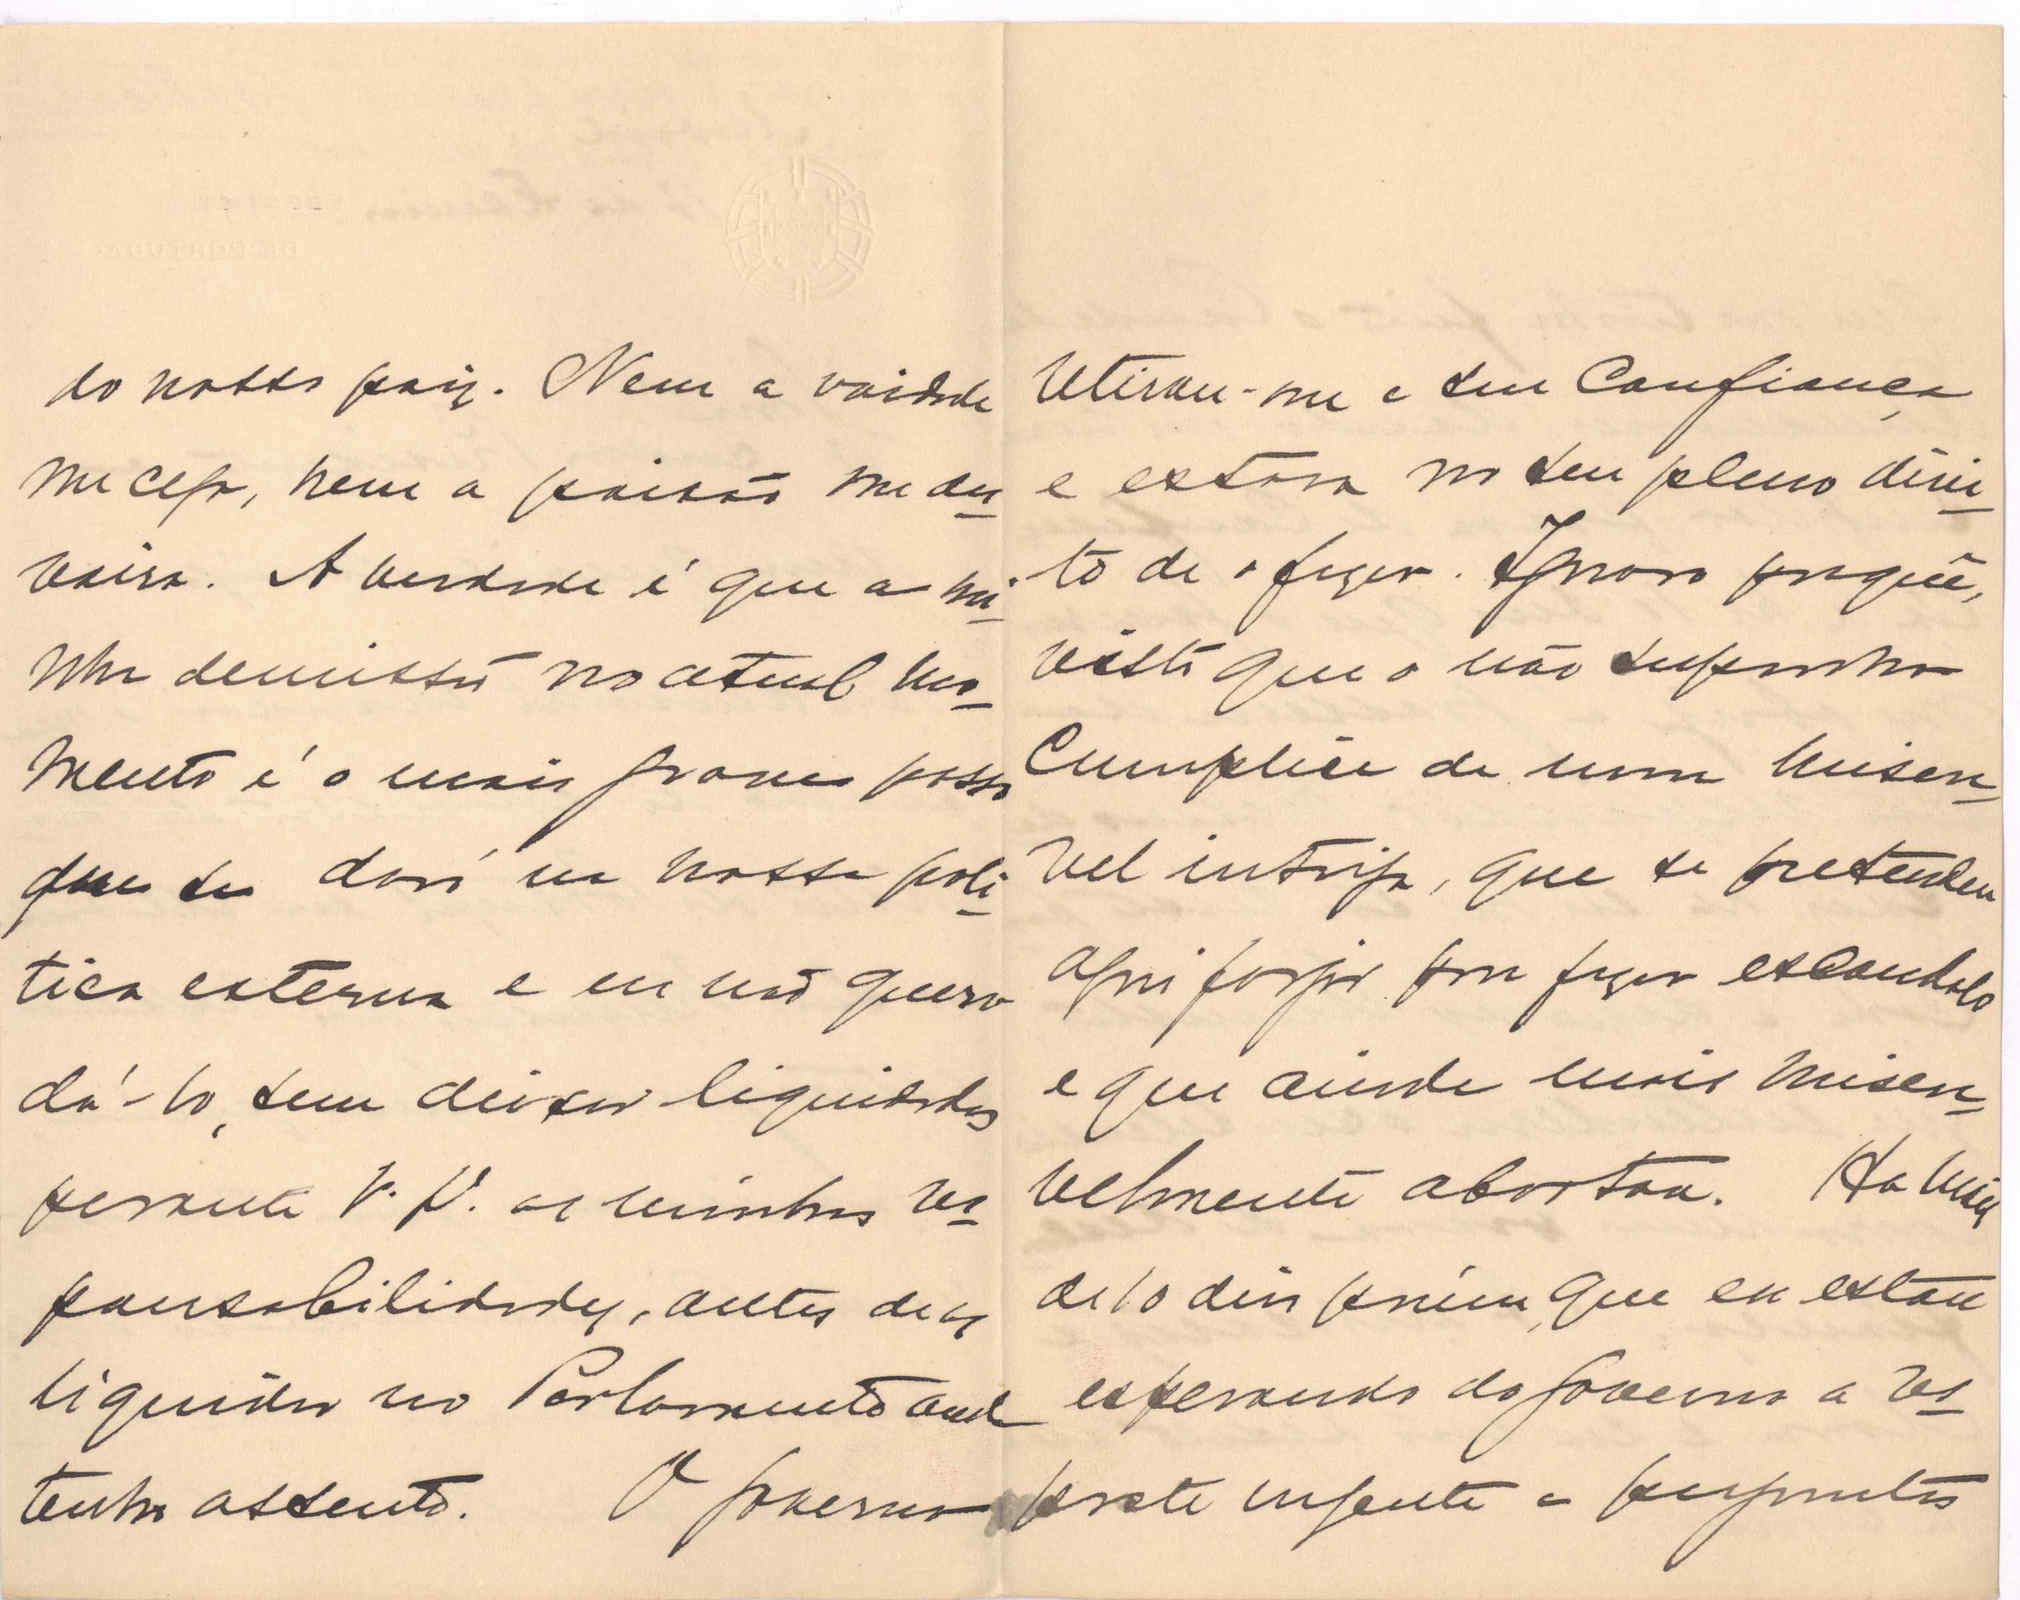 do nosso paiz. Nem a vaidade
me cega, nem a paixão me des
vaira. A verdade é que a mi
nha demissão no actual mo
mento é o mais grave passo
que se dará na nossa poli
tica externa e eu não quero
dá-lo, sem deixar liquidadas
perante V. Ex.ª as minhas res
ponsabilidades, antes de as
liquidar no Parlamento onde
tenho assento. O governo
retirou-me a sua confiança
e estava no seu pleno direi
to de o fazer. Ignoro porquê,
visto que o não suponho
cumplice de uma miserá
vel intriga, que se pretendeu
aqui forjar para fazer escandalo
e que ainda mais misera
velmente abortou. Ha mais
de 10 dias porém, que eu estou
esperando do governo a res
posta urgente a perguntas